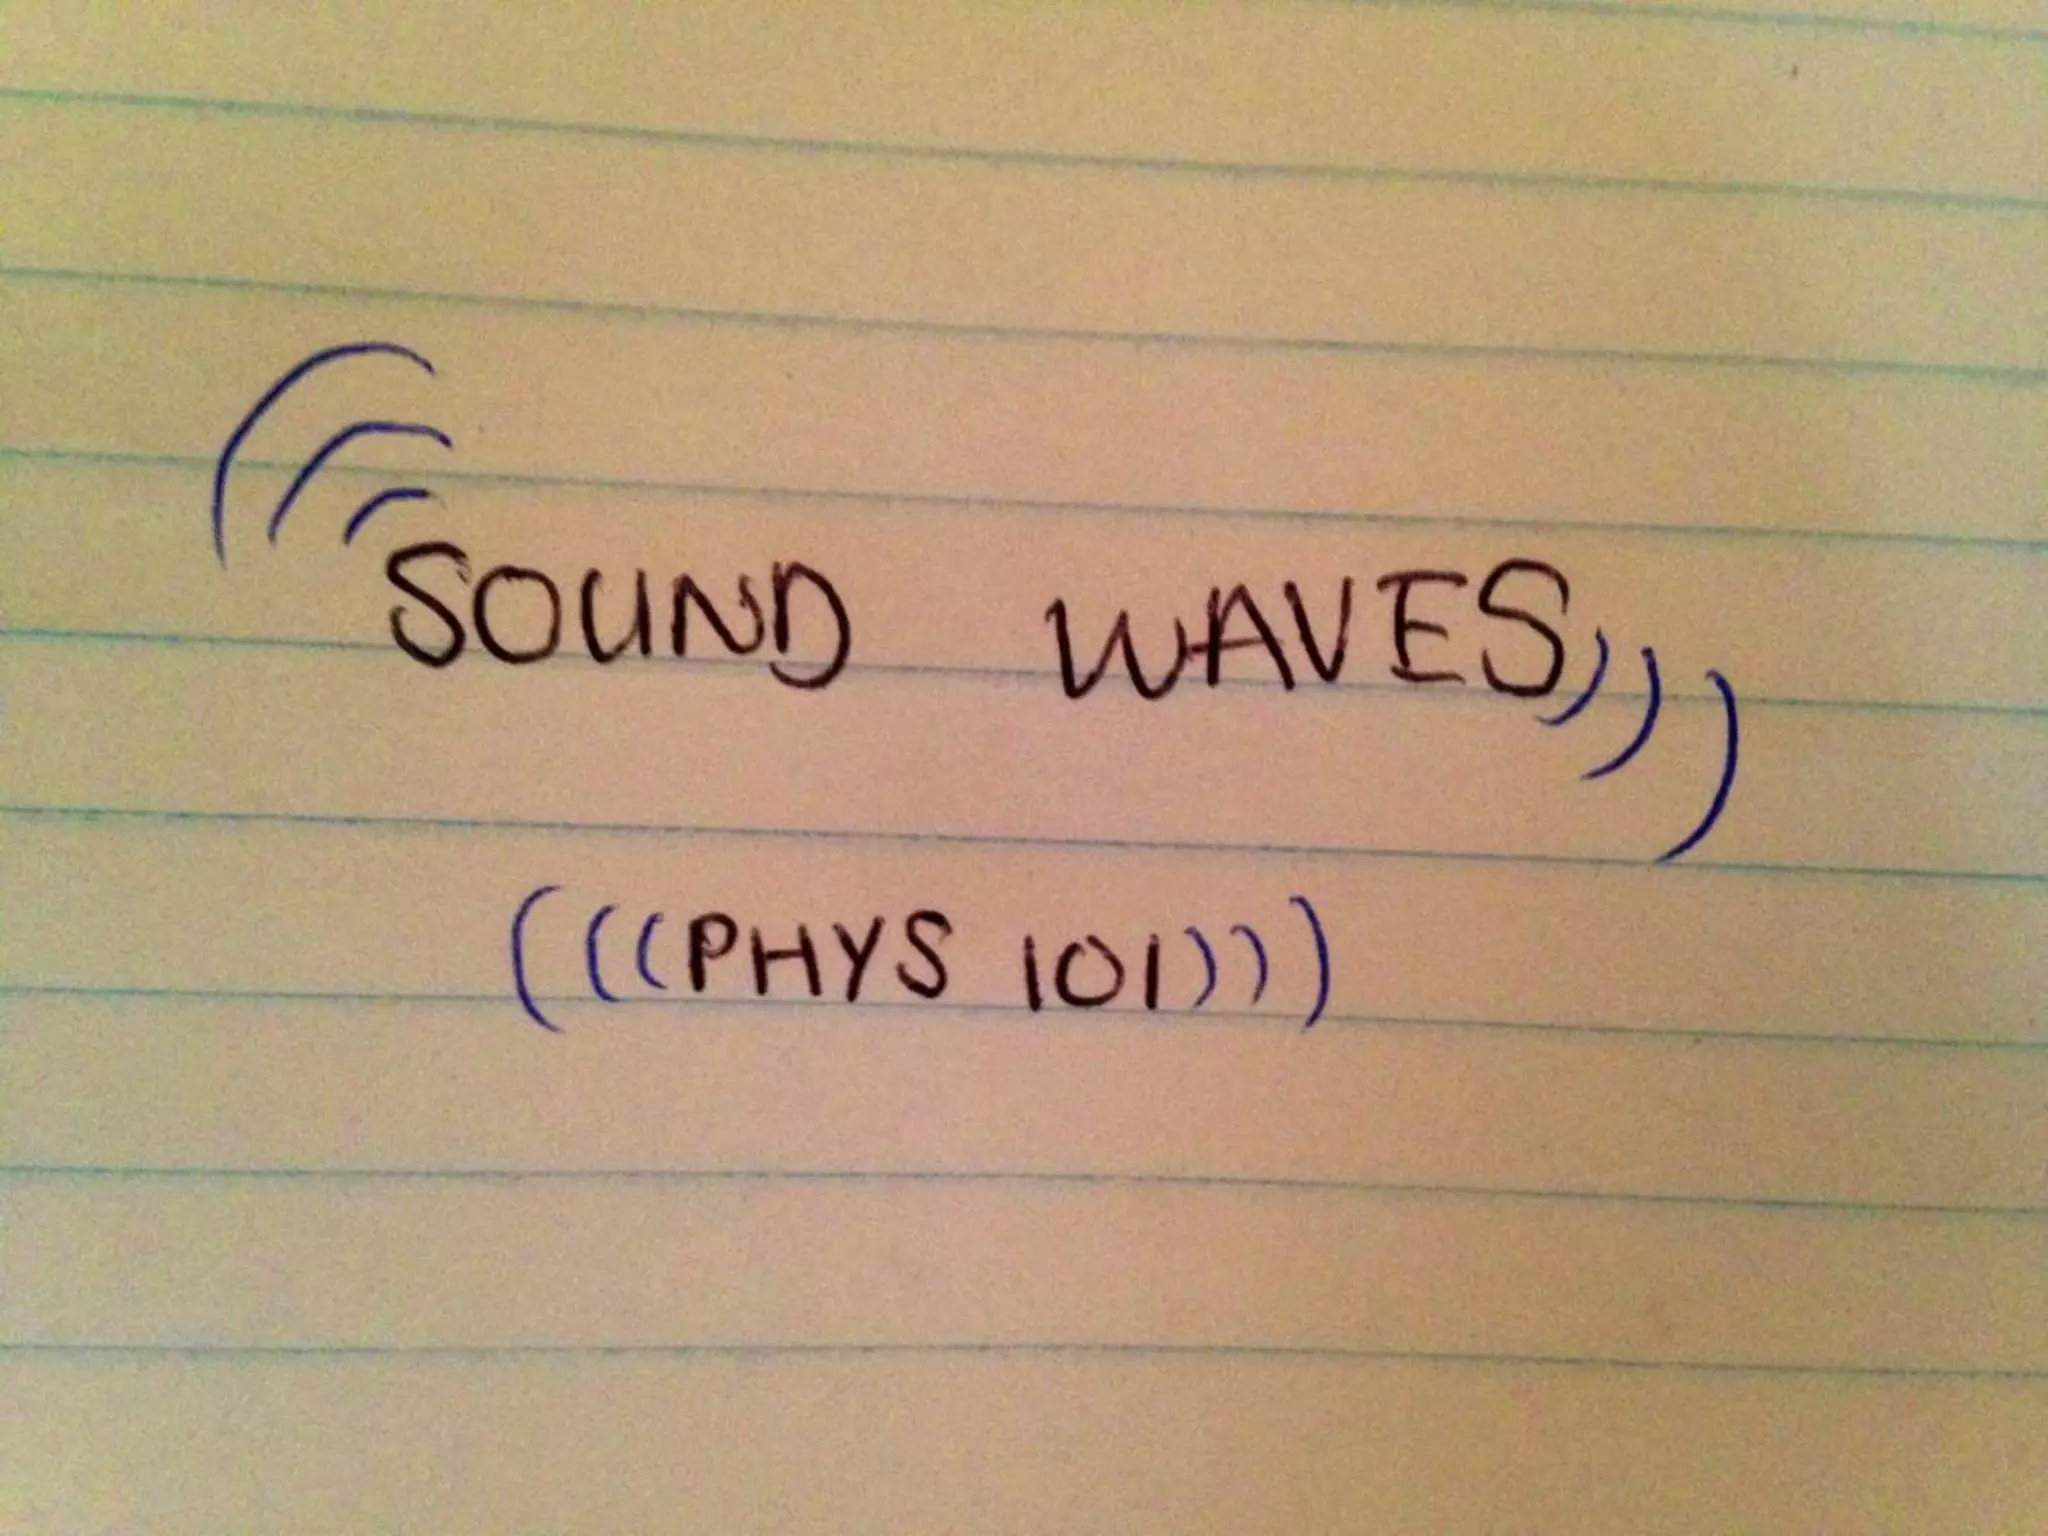 SOUND WAVES
(((PHYS 101)))